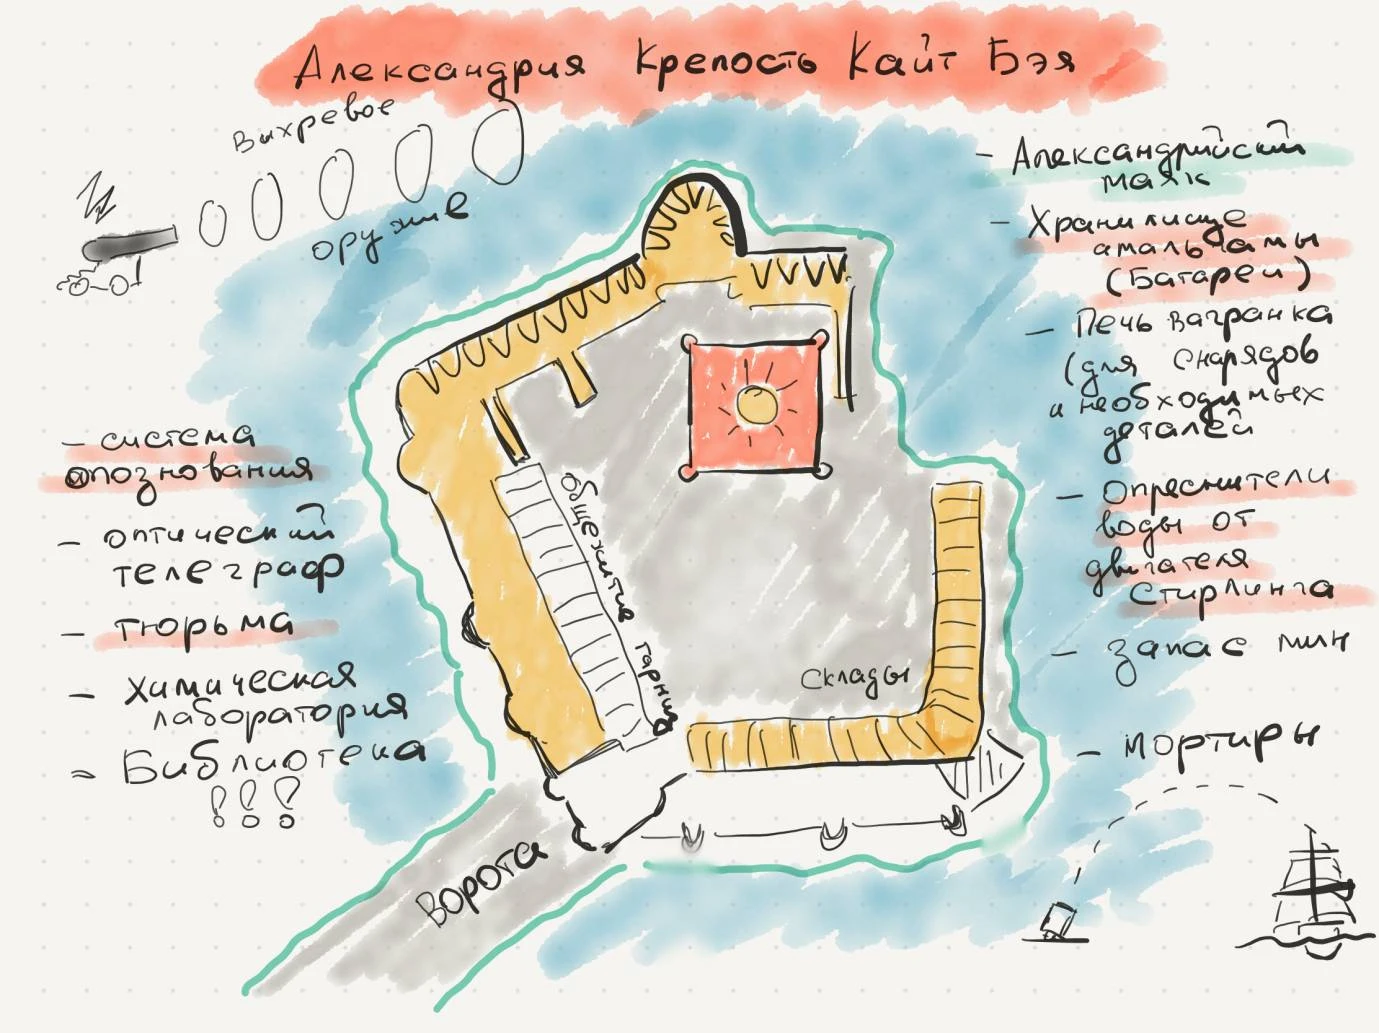 Александрия Крепость Кайт Бэя
Вихревое
оружие
- Александрийский
маяк
- Хранилище
амальгамы
(Батареи)
- Печь вагранка
(для снарядов
и необходимых
деталей
- Опреснители
воды от
двигателя
Стирлинга
- запас мин
- мортиры
- система
опознования
- оптический
телеграф
- тюрьма
- химическая
лаборатория
- Библиотека
!!!
общежитие гарниз
Склады
Ворота